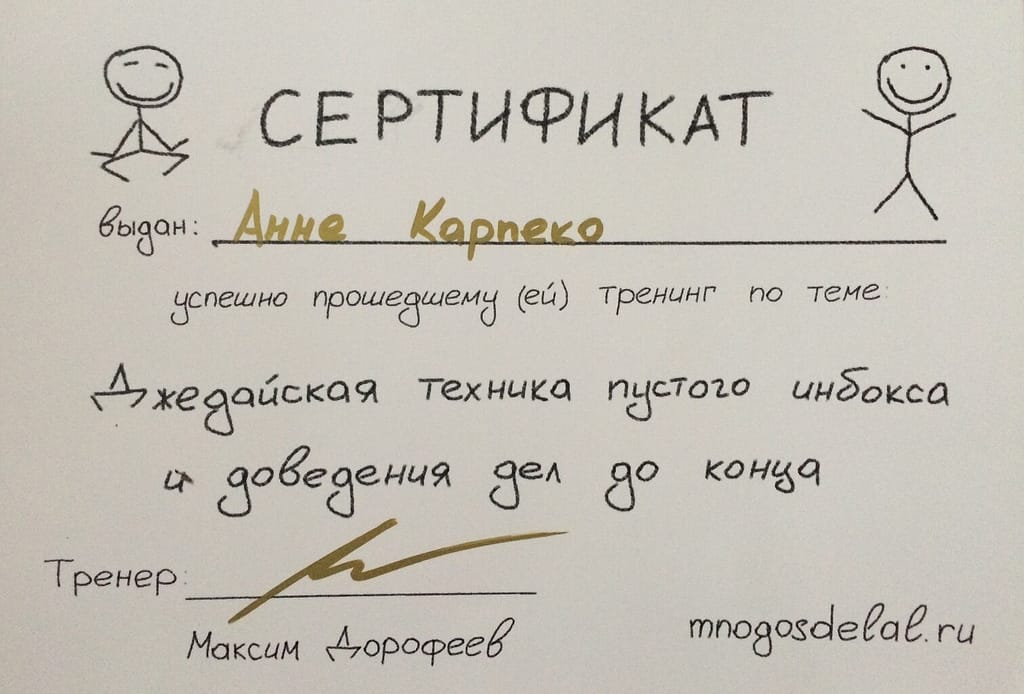 СЕРТИФИКАТ
выдан: Анне Карпеко
успешно прошедшему (ей) тренинг по теме:
Джедайская техника пустого инбокса
и доведения дел до конца
Тренер:
Максим Дорофеев
mnogosdelal.ru